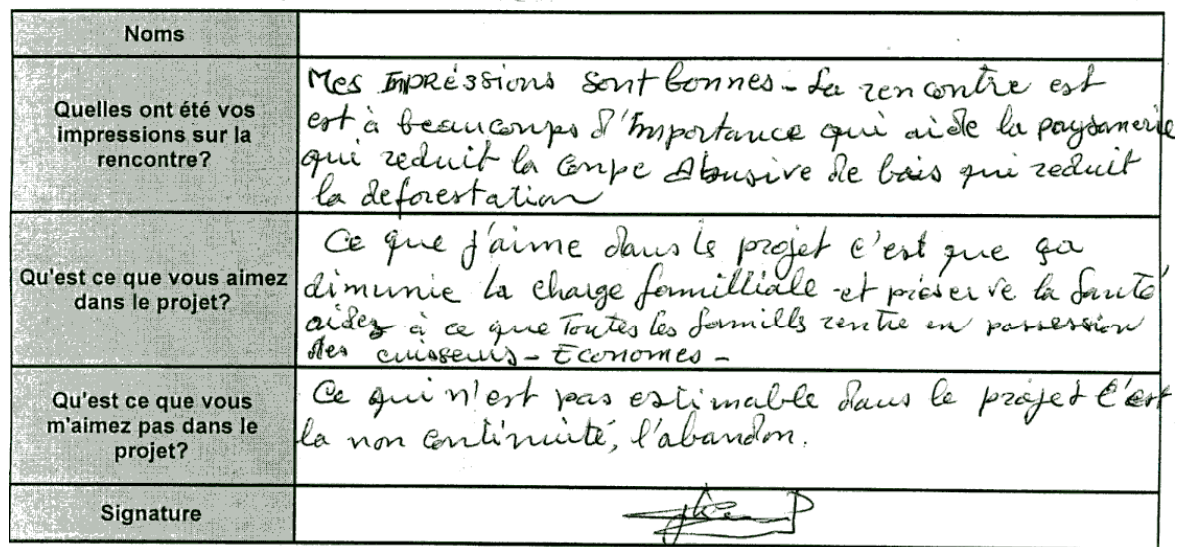 Noms
Quelles ont été vos
impressions sur la
rencontre?
Mes Impréssions sont bonnes - La rencontre est
est à beaucoups d'Importance qui aide la paysannerie
qui reduit la coupe Abusive de bois qui reduit
la deforestation
Qu'est ce que vous aimez
dans le projet?
Ce que j'aime dans le projet c'est que ça
dimunie la charge familliale et préserve la santé
aidez à ce que Toutes les famills rentre en possession
des cuiseurs - Economes -
Qu'est ce que vous
m'aimez pas dans le
projet?
Ce qui n'est pas estimable dans le projet c'est
la non continuité, l'abandon.
Signature